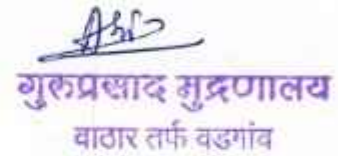 गुरुप्रसाद मुद्रणालय
वाठार तर्फ वडगांव